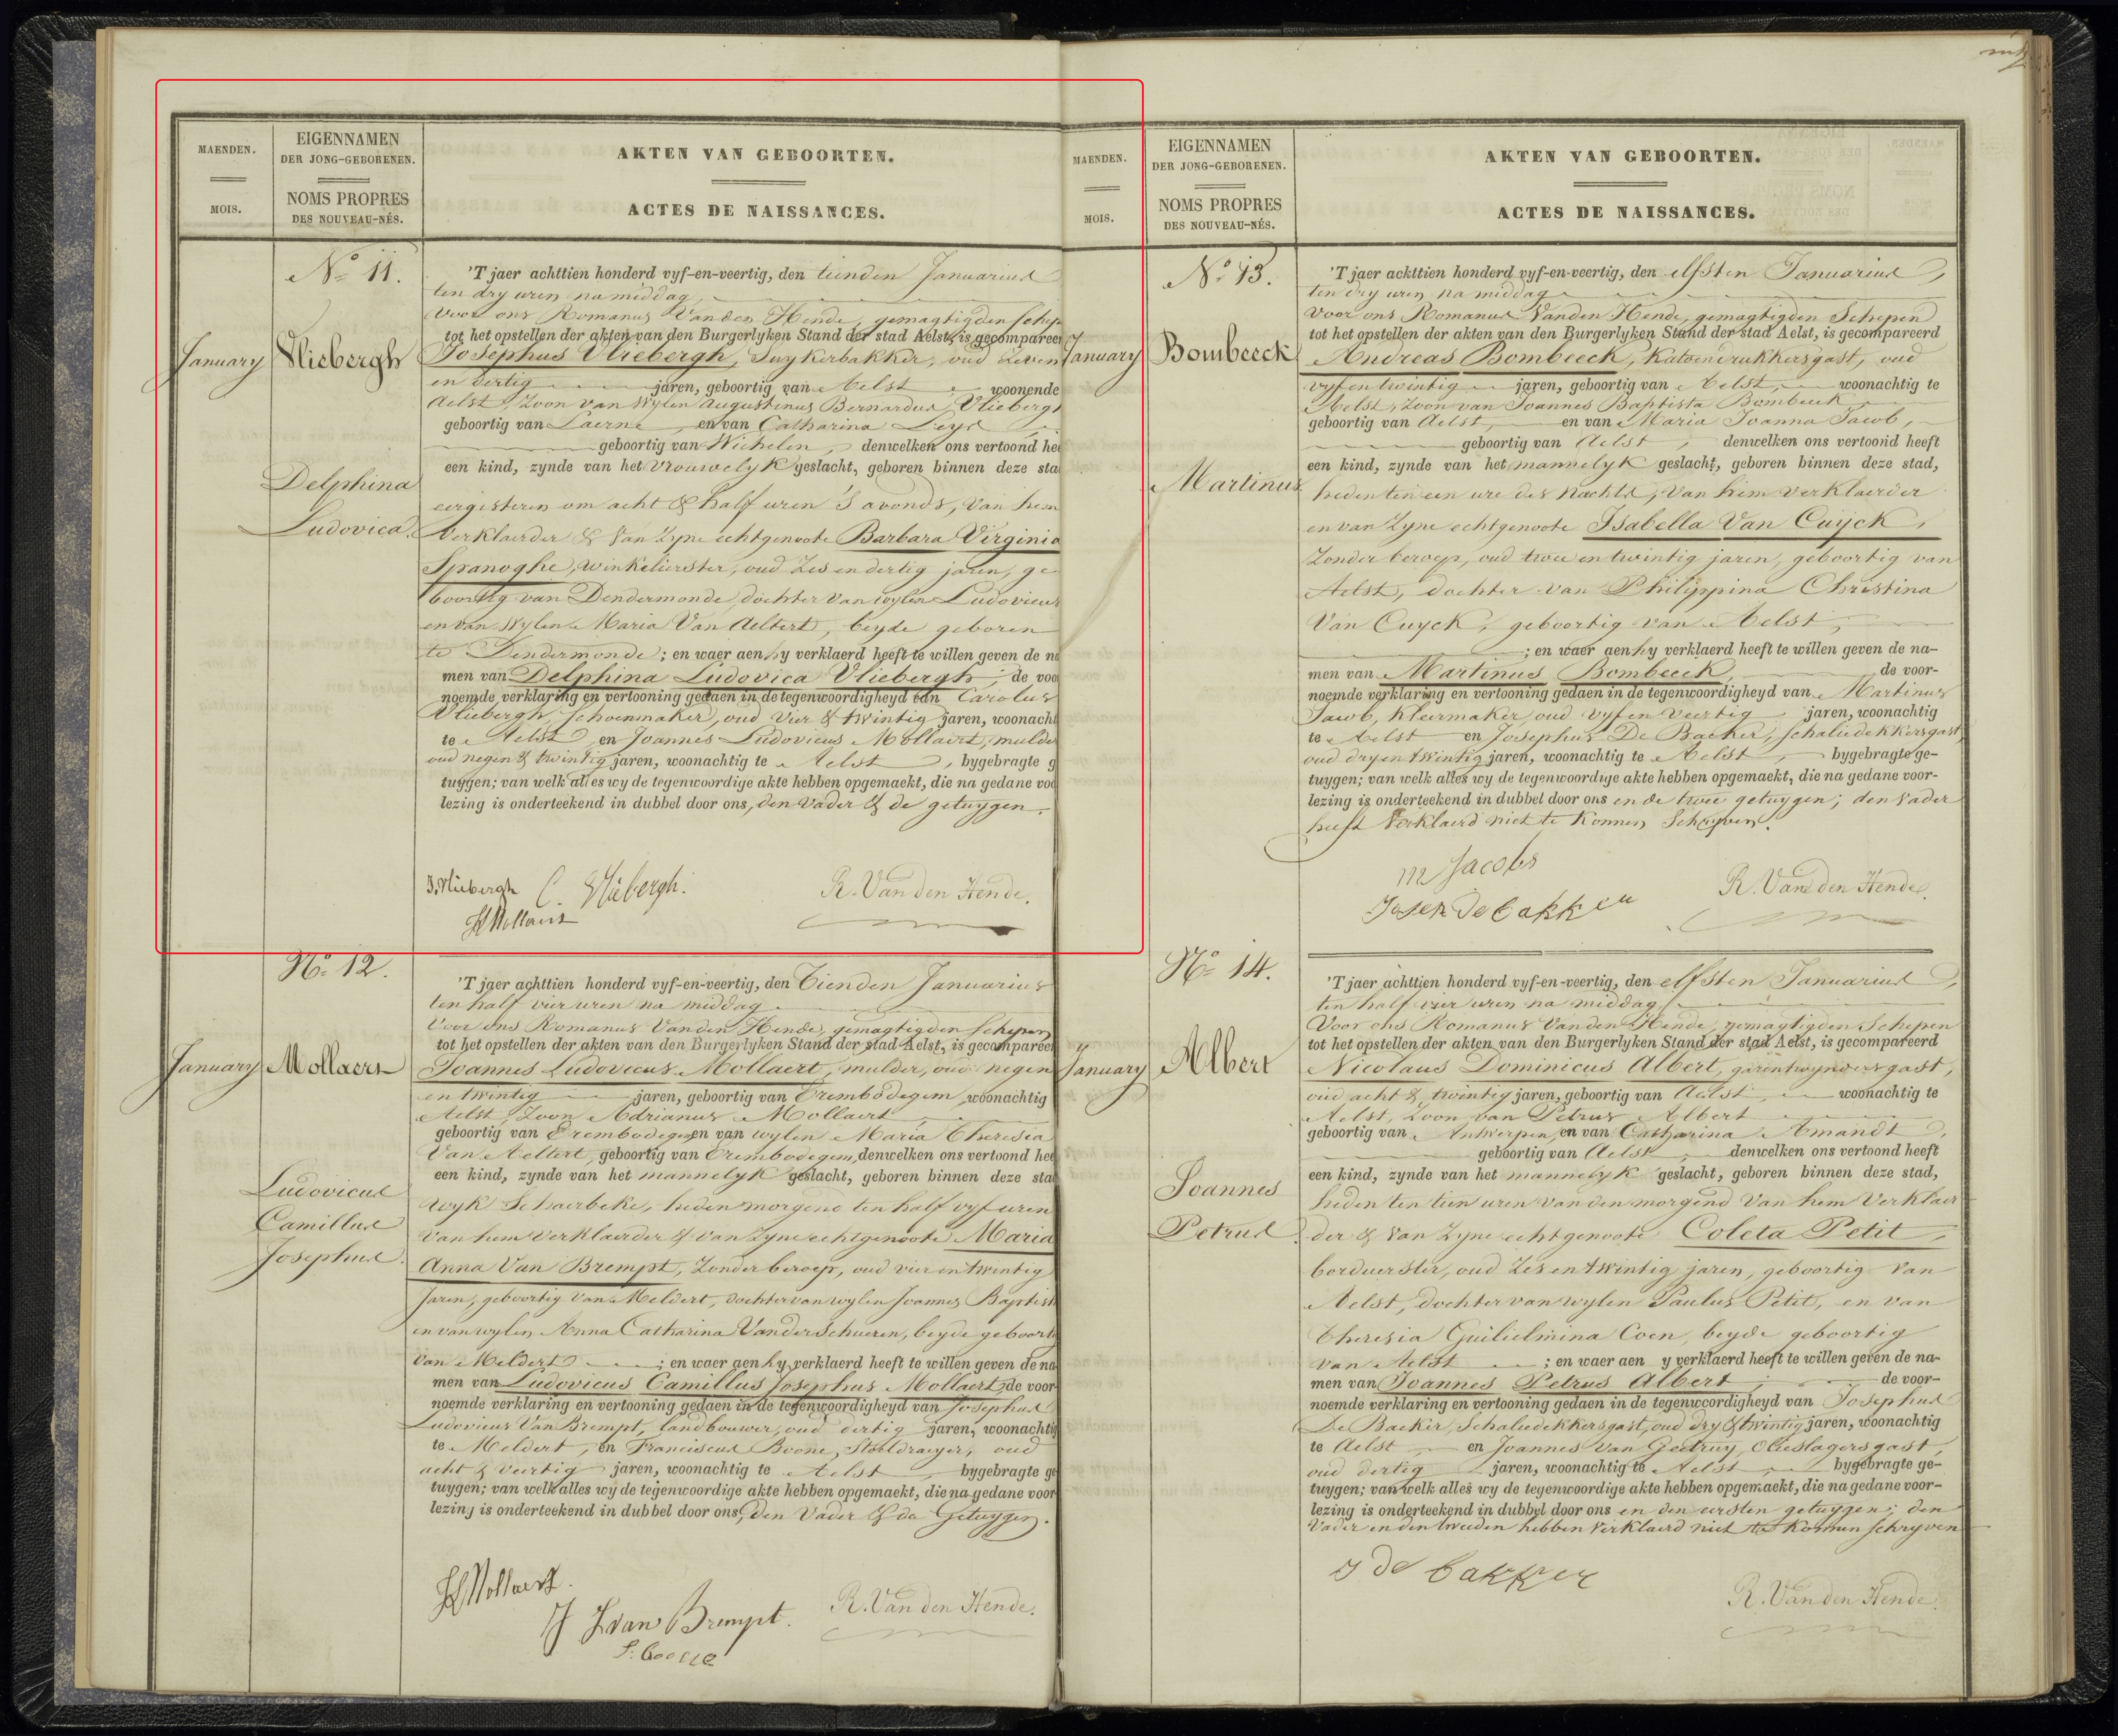 MAENDEN.
MOIS.
EIGENNAMEN
DER JONG-GEBORENEN.
NOMS PROPRES
DES NOUVEAU-NÉS.
AKTEN VAN GEBOORTEN.
ACTES DE NAISSANCES.
No 11.
January
Vliebergh
Delphina
Ludovica.
'T jaer achttien honderd vyf-en-veertig, den tienden Januarius
ten dry uren namiddag
voor ons Romanus Vanden Hende, gemagtigden schep
tot het opstellen der akten van den Burgerlyken Stand der stad Aelst, is gecompareer
Josephus Vliebergh, Suykerbakker, oud zeven
en dertig jaren, geboortig van Aelst, woonende
Aelst, zoon van wylen Augustinus Bernardus Vliebergh
geboortig van Laerne en van Catharina Leys
geboortig van Wichelen, denwelken ons vertoond hee
een kind, zynde van het vrouwelyk geslacht, geboren binnen deze sta
eergisteren om acht & half uren 's avonds, van hem
verklaerder & van zyne echtgenoote Barbara Virginia
Spanoghe, winkelierster, oud zes en dertig jaren, ge
boortig van Dendermonde, dochter van wylen Ludovicus
en van wylen Maria Van Aeltert, beyde geboren
te Dendermonde; en waer aen hy verklaerd heeft te willen geven de na
men van Delphina Ludovica Vliebergh, de voo
noemde verklaring en vertooning gedaen in de tegenwoordigheyd van Carolus
Vliebergh, schoenmaker, oud vier & twintig jaren, woonacht
te Aelst, en Joannes Ludovicus Mollaert, mulder
oud negen & twintig jaren, woonachtig te Aelst, bygebragte g
tuygen; van welk alles wy de tegenwoordige akte hebben opgemaekt, die na gedane voo
lezing is onderteekend in dubbel door ons, den vader & de getuygen.
J. Vliebergh C. Vliebergh. R. Van den Hende.
JL Mollaert
No 12.
January
Mollaert
Ludovicus
Camillus
Josephus.
'T jaer achttien honderd vyf-en-veertig, den Tienden Januarius
ten half vier uren na middag
voor ons Romanus Vanden Hende, gemagtigden Schepen
tot het opstellen der akten van den Burgerlyken Stand der stad Aelst, is gecompareer
Joannes Ludovicus Mollaert, mulder, oud negen
en twintig jaren, geboortig van Erembodegem woonachtig
Aelst, zoon Adrianus Mollaert
geboortig van Erembodegem en van wylen Maria Theresia
Van Aeltert, geboortig van Erembodegem, denwelken ons vertoond hee
een kind, zynde van het mannelyk geslacht, geboren binnen deze sta
wyk Schaerbeke, heden morgend ten half vyf uren
van hem verklaerder & van zyne echtgenoote Maria
Anna Van Brempt, zonder beroep, oud vier en twintig
jaren, geboortig van Meldert, dochter van wylen Joannes Baptist
en van wylen Anna Catharina Vander Schueren, beyde geboorti
van Meldert; en waer aen hy verklaerd heeft te willen geven de na
men van Ludovicus Camillus Josephus Mollaert, de voor
noemde verklaring en vertooning gedaen in de tegenwoordigheyd van Josephus
Ludovicus Van Brempt, landbouwer, oud dertig jaren, woonachtig
te Meldert, en Franciscus Boone, Stoeldraeyer, oud
acht & veertig jaren, woonachtig te Aelst, bygebragte ge
tuygen; van welk alles wy de tegenwoordige akte hebben opgemaekt, die na gedane voor
lezing is onderteekend in dubbel door ons, den Vader & de Getuygen.
JL Mollaert.
J L van Brempt. R. Van den Hende.
f. boone
MAENDEN.
MOIS.
EIGENNAMEN
DER JONG-GEBORENEN.
NOMS PROPRES
DES NOUVEAU-NÉS.
AKTEN VAN GEBOORTEN.
ACTES DE NAISSANCES.
No 13.
January
Bombeeck
Martinus
'T jaer achttien honderd vyf-en-veertig, den elfsten Januarius,
ten dry uren na middag
voor ons Romanus Vanden Hende, gemagtigden Schepen
tot het opstellen der akten van den Burgerlyken Stand der stad Aelst, is gecompareerd
Andreas Bombeeck, Katoendrukkersgast, oud
vyf en twintig jaren, geboortig van Aelst, woonachtig te
Aelst, zoon van Joannes Baptista Bombeeck
geboortig van Aelst, en van Maria Joanna Jacob,
geboortig van Aelst, denwelken ons vertoond heeft
een kind, zynde van het mannelyk geslacht, geboren binnen deze stad,
heden ten een ure des nachts, van hem verklaerder
en van zyne echtgenoote Isabella Van Cuyck,
zonder beroep, oud twee en twintig jaren, geboortig van
Aelst, dochter van Philippina Christina
Van Cuyck, geboortig van Aelst,
; en waer aen hy verklaerd heeft te willen geven de na-
men van Martinus Bombeeck, de voor-
noemde verklaring en vertooning gedaen in de tegenwoordigheyd van Martinus
Jacob, kleermaker, oud vyf en veertig jaren, woonachtig
te Aelst en Josephus De Backer, schaliedekkersgast,
oud dry en twintig jaren, woonachtig te Aelst, bygebragte ge-
tuygen; van welk alles wy de tegenwoordige akte hebben opgemaekt, die na gedane voor-
lezing is onderteekend in dubbel door ons en de twee getuygen; den vader
heeft verklaerd niet te konnen schryven.
m Jacobs
Josep de bakker R. Van den Hende.
No 14.
January
Albert
Joannes
Petrus.
'T jaer achttien honderd vyf-en-veertig, den elfsten Januarius,
ten half vier uren na middag
voor ons Romanus Vanden Hende, gemagtigden Schepen
tot het opstellen der akten van den Burgerlyken Stand der stad Aelst, is gecompareerd
Nicolaus Dominicus Albert, garentwyndersgast,
oud acht & twintig jaren, geboortig van Aelst, woonachtig te
Aelst, zoon van Petrus Albert
geboortig van Antwerpen, en van Catharina Amandt,
geboortig van Aelst, denwelken ons vertoond heeft
een kind, zynde van het mannelyk geslacht, geboren binnen deze stad,
heden ten tien uren van den morgend van hem verklaer
der & van zyne echtgenoote Coleta Petit,
borduerster, oud zes en twintig jaren, geboortig van
Aelst, dochter van wylen Paulus Petit, en van
Theresia Guilielmina Coen, beyde geboortig
van Aelst; en waer aen y verklaerd heeft te willen geven de na-
men van Joannes Petrus Albert, de voor-
noemde verklaring en vertooning gedaen in de tegenwoordigheyd van Josephus
De Backer, Schaliedekkersgast, oud dry & twintig jaren, woonachtig
te Aelst en Joannes Van Geetruy, Olieslagersgast,
oud dertig jaren, woonachtig te Aelst, bygebragte ge-
tuygen; van welk alles wy de tegenwoordige akte hebben opgemaekt, die na gedane voor-
lezing is onderteekend in dubbel door ons en den eersten getuygen; den
Vader en den tweeden hebben verklaerd niet te konnen schryven
J de bakker
R. Van den Hende.